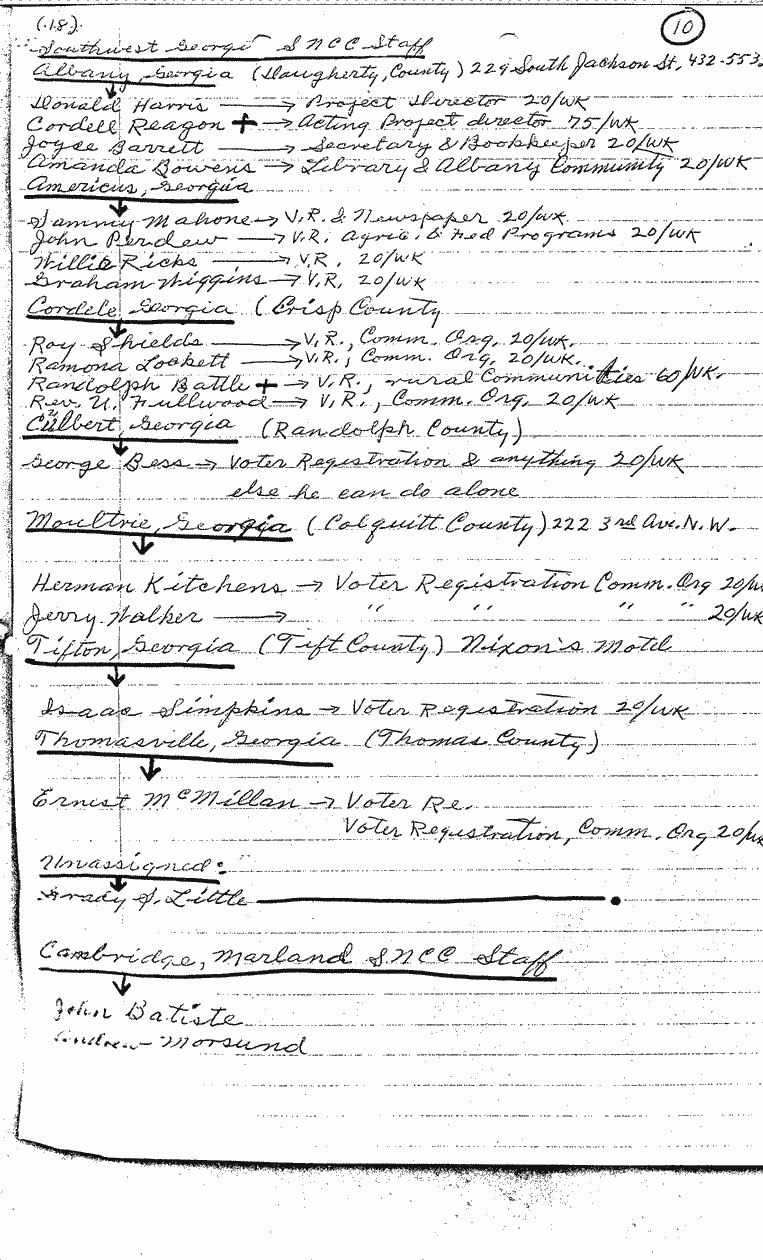 (.18).
10
Southwest Georgi SNCC Staff
Albany, Georgia (Daugherty, County) 229 South Jackson St, 432-553
Donald Harris → Project Director 20/WK
Cordell Reagon + → Acting Project director 75/WK
Joyce Barrett → Secretary & Bookkeeper 20/WK
Amanda Bowens → Library & Albany Community 20/WK
Americus, Georgia
Sammy Mahone → V.R. & Newspaper 20/WK
John Perdew → V.R. Agric. & Fed Programs 20/WK
Willie Ricks → V.R. 20/WK
Graham Wiggins → V.R. 20/WK
Cordele Georgia (Crisp County
Roy Shields → V.R., Comm. Org. 20/WK.
Ramona Lockett → V.R., Comm. Org, 20/WK.
Randolph Battle + → V.R., rural Communities 60/WK.
Rev. U. Fullwood → V.R., Comm. Org, 20/WK
Culbert, Georgia (Randolph County)
George Bess → Voter Registration & anything 20/WK
else he can do alone
Moultrie, Georgia (Colquitt County) 222 3rd Ave. N.W.
Herman Kitchens → Voter Registration Comm. Org 20/W
Jerry Walker → " " " " 20/WK
Tifton, Georgia (Tift County) Nixon's Motel
Isaac Simpkins → Voter Registration 20/WK
Thomasville, Georgia (Thomas County)
Ernest McMillan → Voter Re.
Voter Registration, Comm. Org 20/WK
Unassigned:
Grady S. Little
Cambridge, Marland SNCC Staff
John Batiste
Morsund